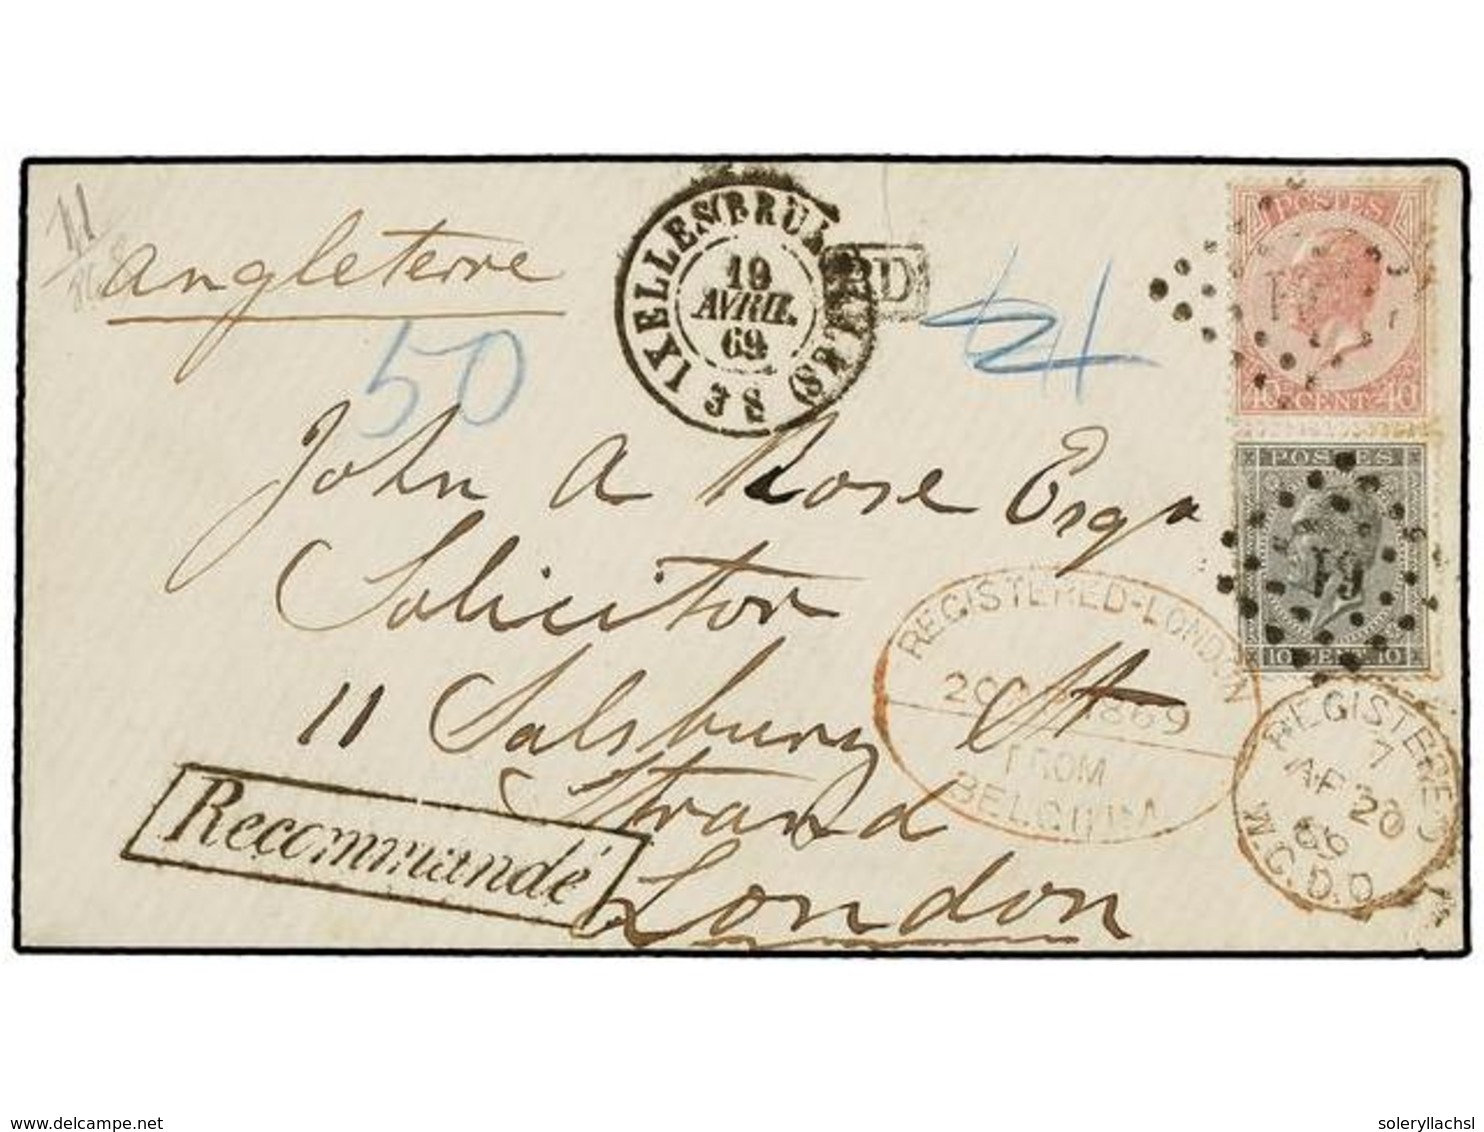 Angleterre
50
IXELLES (BRUXELLES) 3 S
19
AVRIL
69
PD
POSTES
40 CENT 40
POSTES
61
10 CENT 10
John A Rose Esqr
Solicitor
11 Salsbury St
Strand
London
Recommandé
REGISTERED-LONDON
1869
FROM
BELGIUM
REGISTERED
7
AP 20
69
W.C.D.O
www.delcampe.net
soleryllachsl